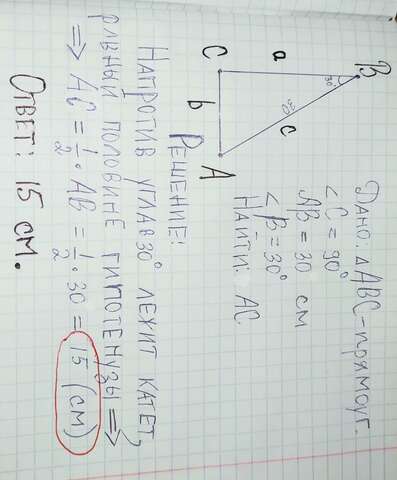 B
30°
a
30
c
C
b
A
Дано: △ABC-прямоуг.
∠C = 90°
AB = 30 см
∠B = 30°
Найти: AC
Решение:
Напротив угла 30° лежит катет,
равный половине гипотенузы ⇒
⇒ AC = 1/2 · AB = 1/2 · 30 = 15 (см)
Ответ: 15 см.